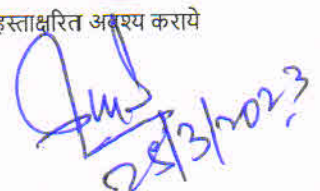 हस्ताक्षरित अवश्य कराये
25/3/2023